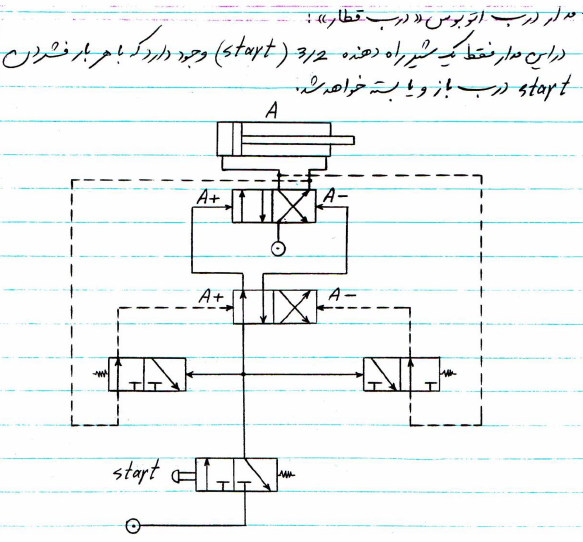 مدار درب اتوبوس «درب قطار»:
در این مدار فقط یک شیر راه دهنده 3/2 (start) وجود دارد که با هر بار فشردن
start درب باز و یا بسته خواهد شد.
A
A+ A-
A+ A-
start